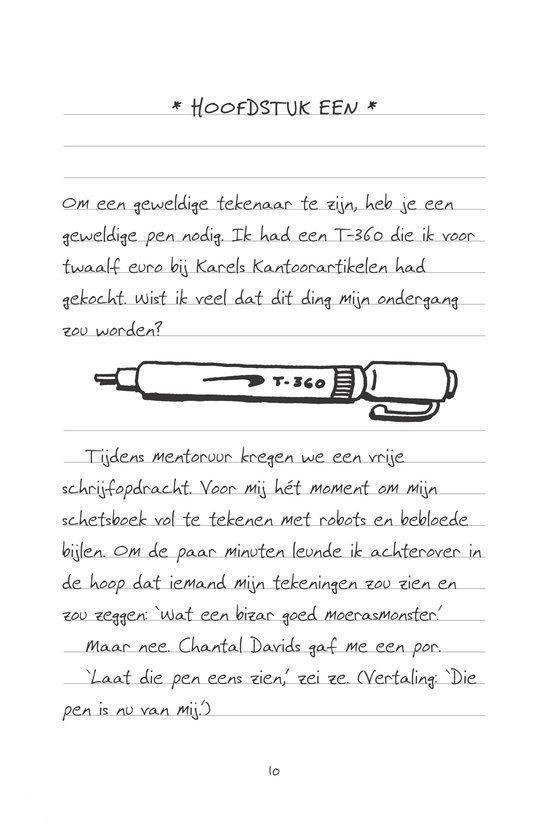 * HOOFDSTUK EEN *
Om een geweldige tekenaar te zijn, heb je een
geweldige pen nodig. Ik had een T-360 die ik voor
twaalf euro bij Karels Kantoorartikelen had
gekocht. Wist ik veel dat dit ding mijn ondergang
zou worden?
T-360
Tijdens mentoruur kregen we een vrije
schrijfopdracht. Voor mij hét moment om mijn
schetsboek vol te tekenen met robots en bebloede
bijlen. Om de paar minuten leunde ik achterover in
de hoop dat iemand mijn tekeningen zou zien en
zou zeggen: ‘Wat een bizar goed moerasmonster.’
Maar nee. Chantal Davids gaf me een por.
‘Laat die pen eens zien,’ zei ze. (Vertaling: ‘Die
pen is nu van mij.’)
10